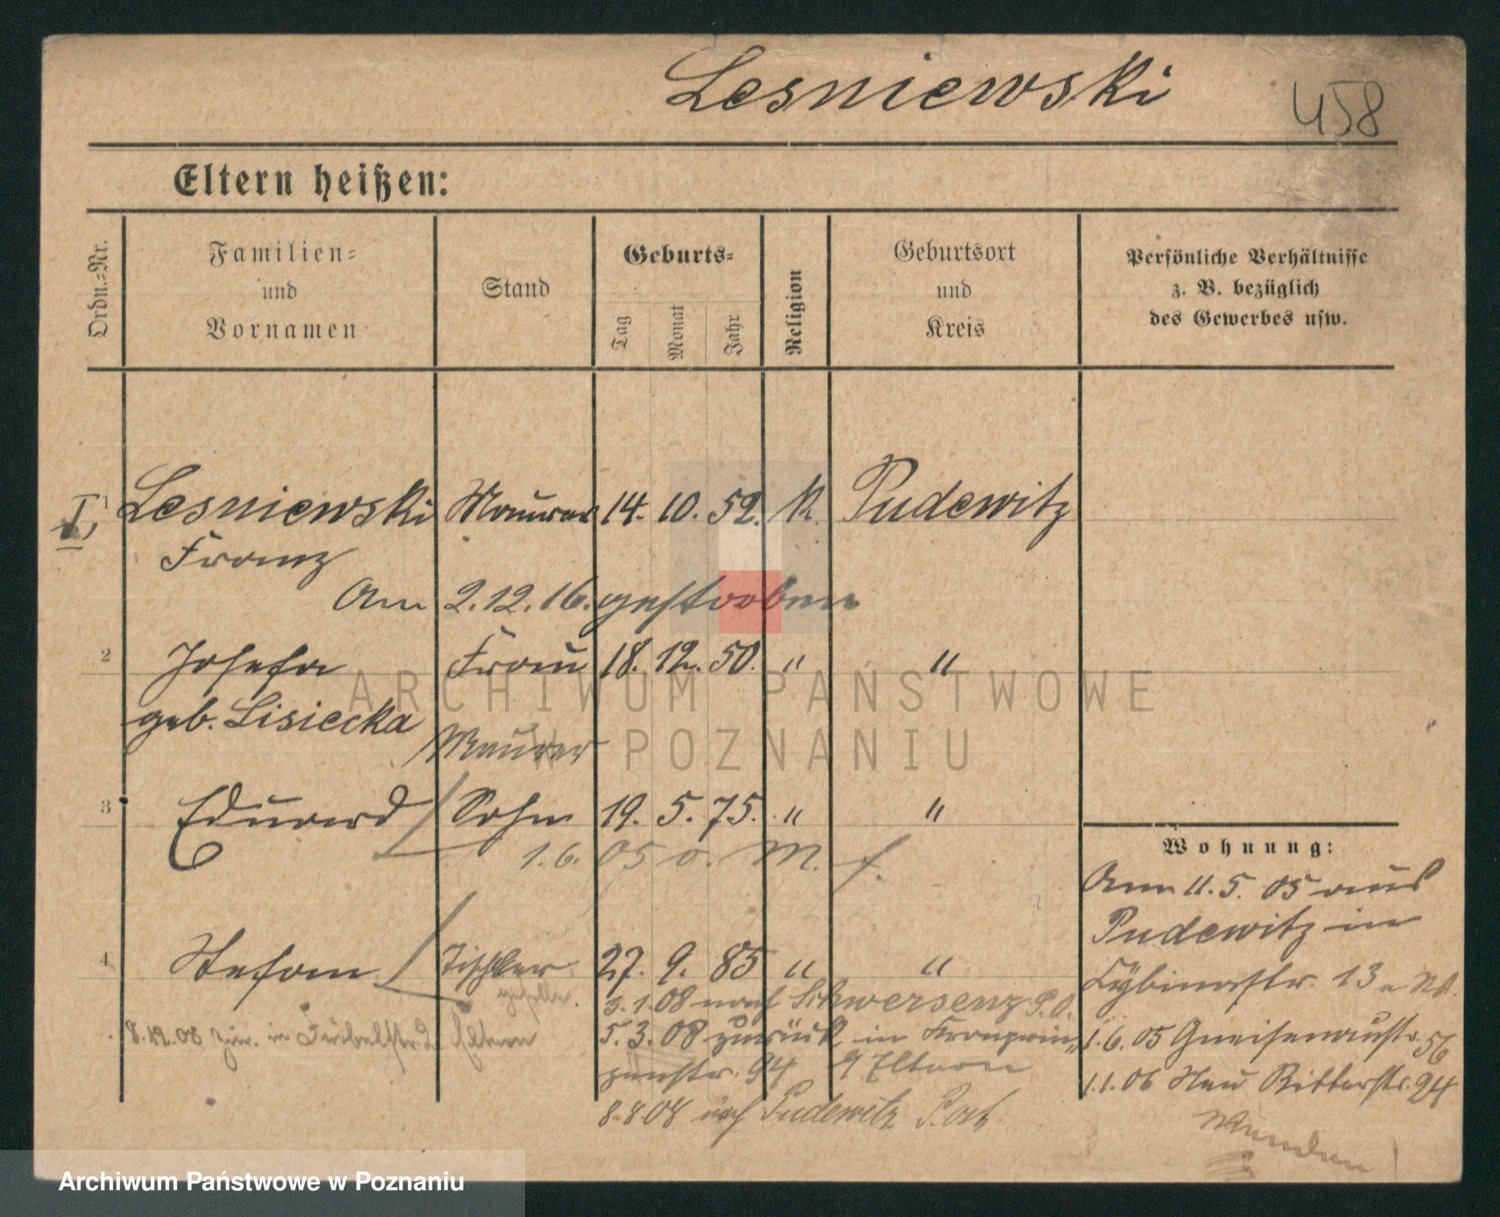 Lesniewski
458
Eltern heißen:
Ordn.-Nr.
Familien-
und
Vornamen
Stand
Geburts-
Tag
Monat
Jahr
Religion
Geburtsort
und
Kreis
Persönliche Verhältnisse
z. B. bezüglich
des Gewerbes usw.
I, Lesniewski Maurer 14. 10. 52. K. Pudewitz
Franz
Am 2.12.16. gestorben
2 Josefa Frau 18. 12. 50. " "
geb. Lisiecka
Maurer
3 Eduard Sohn 19. 5. 75. " "
1.6. 05 o. M. f.
4 Stefan Tischler 27. 9. 85 " "
geselle.
3.1.08 nach Schwersenz P.O.
8.12.08 zur. in Fröbelstr. 2. Eltern
5.3.08 zurück in Kronprin-
zenstr. 94 Eltern
8.8.08 nach Pudewitz P.
Wohnung:
Am 11.5.05 aus
Pudewitz in
Cybinastr. 13
1.6.05 Gneisenaustr. 56
1.1.06 Neu Ritterstr. 24
ARCHIWUM PAŃSTWOWE
W POZNANIU
Archiwum Państwowe w Poznaniu